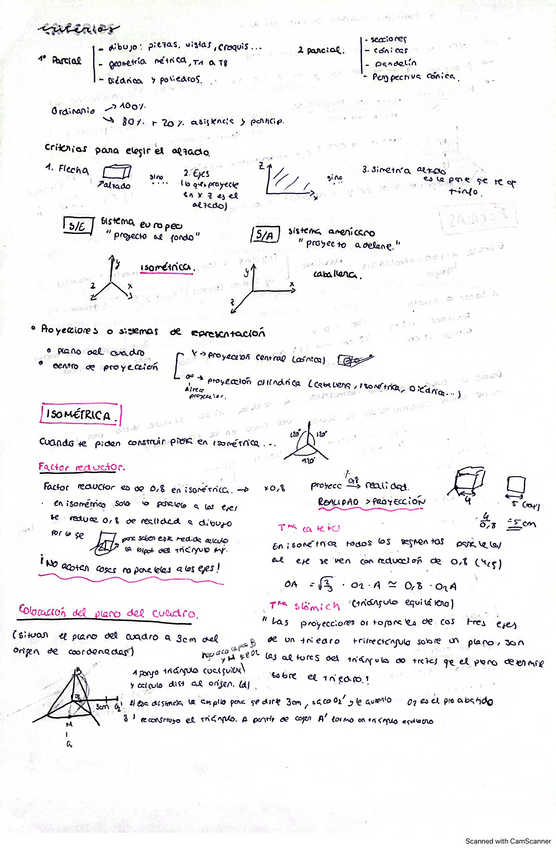 criterios
1º Parcial
- dibujo: piezas, vistas, croquis...
- geometría métrica, T1 a T8
- Diédrica y poliedros.
2 parcial.
- secciones
- cónicas
- Dandelin
- Perspectiva cónica.
Ordinario → 100%
↘ 80% + 20% asistencia y particip.
Criterios para elegir el alzado
1. Flecha
alzado
sino
....
2. Ejes
(lo que proyecte
en x z es el
alzado)
Z
x
sino
....
3. Simetría alzado
S/E
Sistema europeo
"proyecto al fondo"
S/A
sistema americano
"proyecto adelante."
y
x
z
isométrica.
y
x
z
caballera.
• Proyecciones o sistemas de representación
• plano del cuadro
• centro de proyección
V → proyección central (cónica)
∞ → proyección cilíndrica (caballera, isométrica, Diédrica...)
ISOMÉTRICA
Cuando te piden construir pieza en isométrica...
120º
120º
120º
Factor reductor.
Factor reductor es de 0,8 en isométrica. → x0,8
proyecc → realidad.
REALIDAD > PROYECCIÓN
4
5 (cm)
4/0,8 = 5 cm
• en isométrico solo lo paralelo a los ejes
se reduce 0,8 de realidad a dibujo
por lo se
para saber esta medida calculo
¡No acoten cosas no paralelas a los ejes!
Tma cateto
En isométrica todos los segmentos paralelos
al eje se ven con reducción de 0,8 (4/5)
OA = √2/3 · O2 · A ≃ 0,8 · O2A
Colocación del plano del cuadro.
(situar el plano del cuadro a 3cm del
origen de coordenadas)
Tma slömich (triángulo equilátero)
"Las proyecciones ortogonales de los tres ejes
de un triedro trirrectángulo sobre un plano, son
las alturas del triángulo de trazas que el plano determine
sobre el triedro!
1 pongo triángulo cualquiera
y calculo dist al origen. (d)
3cm
M
2) esa distancia la amplio para que diste 3cm, saco O2' y le aumento
O2 es el pto abatido
3) reconstruyo el triángulo. A partir de coger A' formo un triángulo equilátero
Scanned with CamScanner